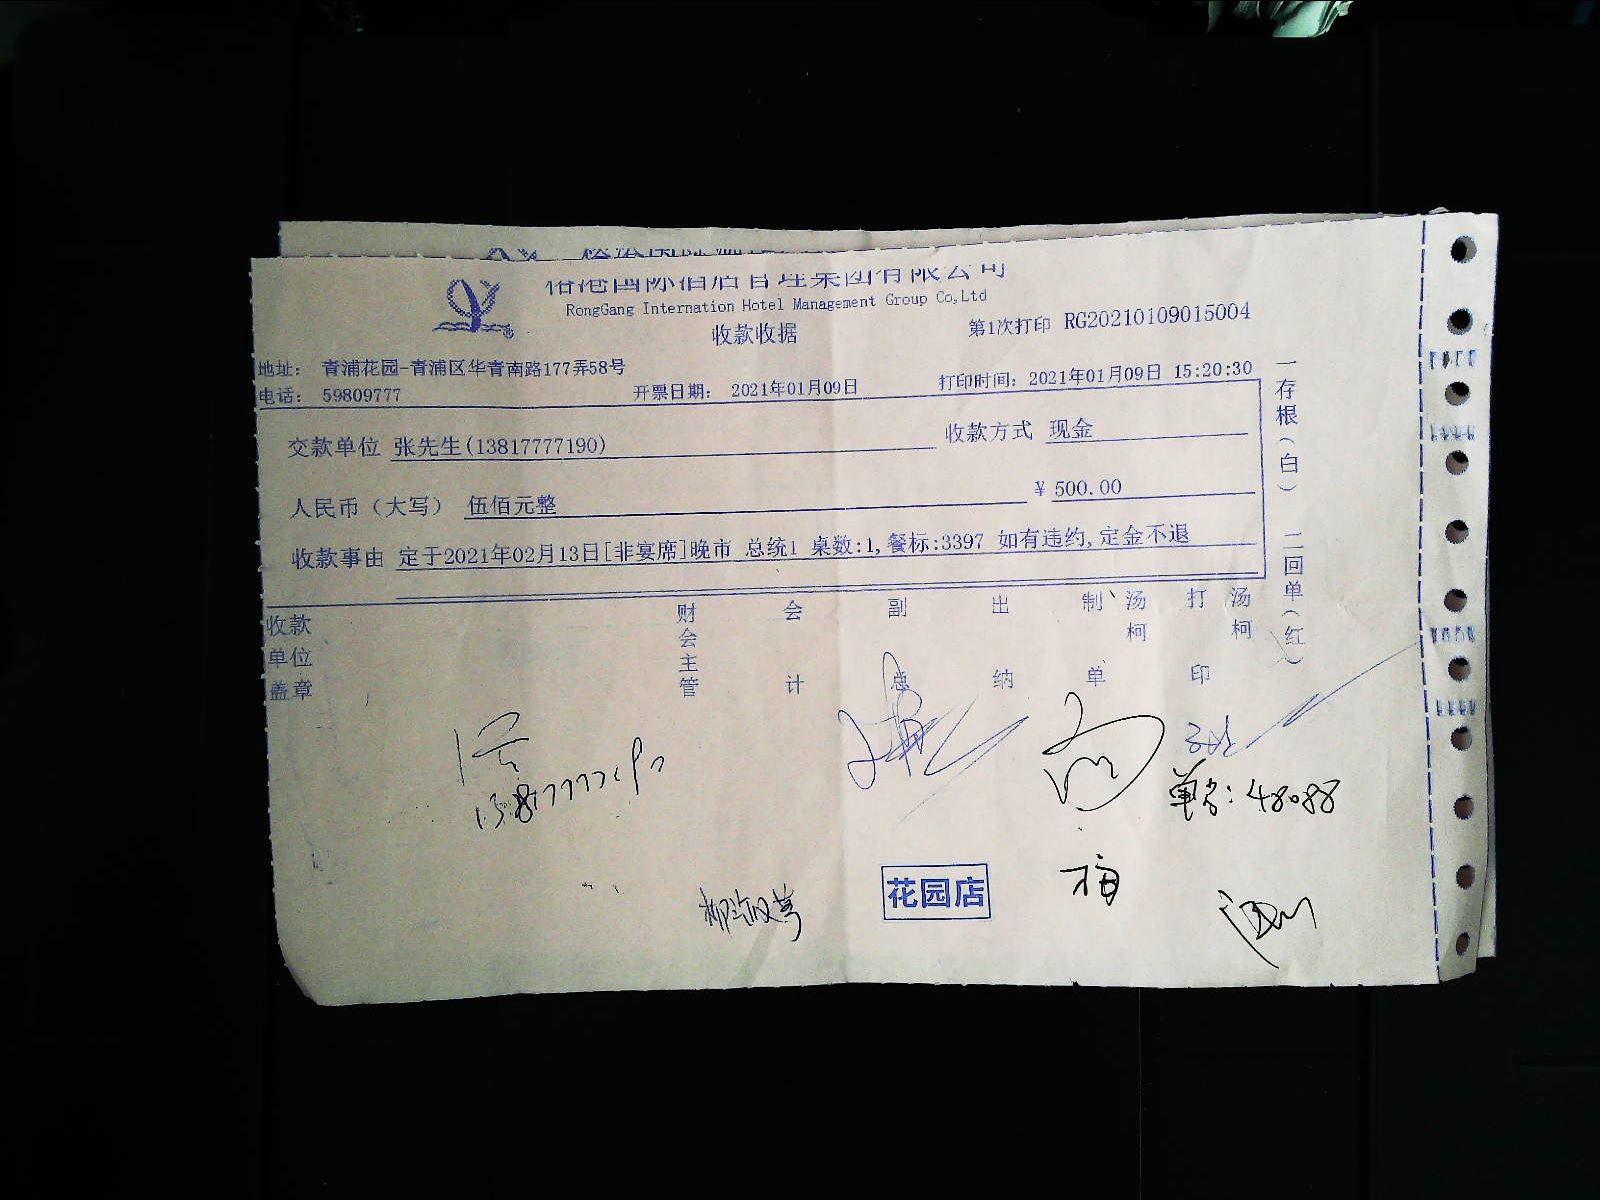 国际酒店管理集团有限公司
RongGang Internation Hotel Management Group Co,Ltd
收款收据
第1次打印 RG20210109015004
地址： 青浦花园-青浦区华青南路177弄58号
电话： 59809777
开票日期： 2021年01月09日
打印时间：2021年01月09日 15:20:30
交款单位 张先生(13817777190)
收款方式 现金
人民币（大写） 伍佰元整
¥ 500.00
收款事由 定于2021年02月13日[非宴席]晚市 总统1 桌数:1,餐标:3397 如有违约,定金不退
一存根（白） 二回单（红）
收款单位盖章
财会主管
会计
副总
出纳
制单 汤柯
打印 汤柯
单号: 48088
花园店
梅